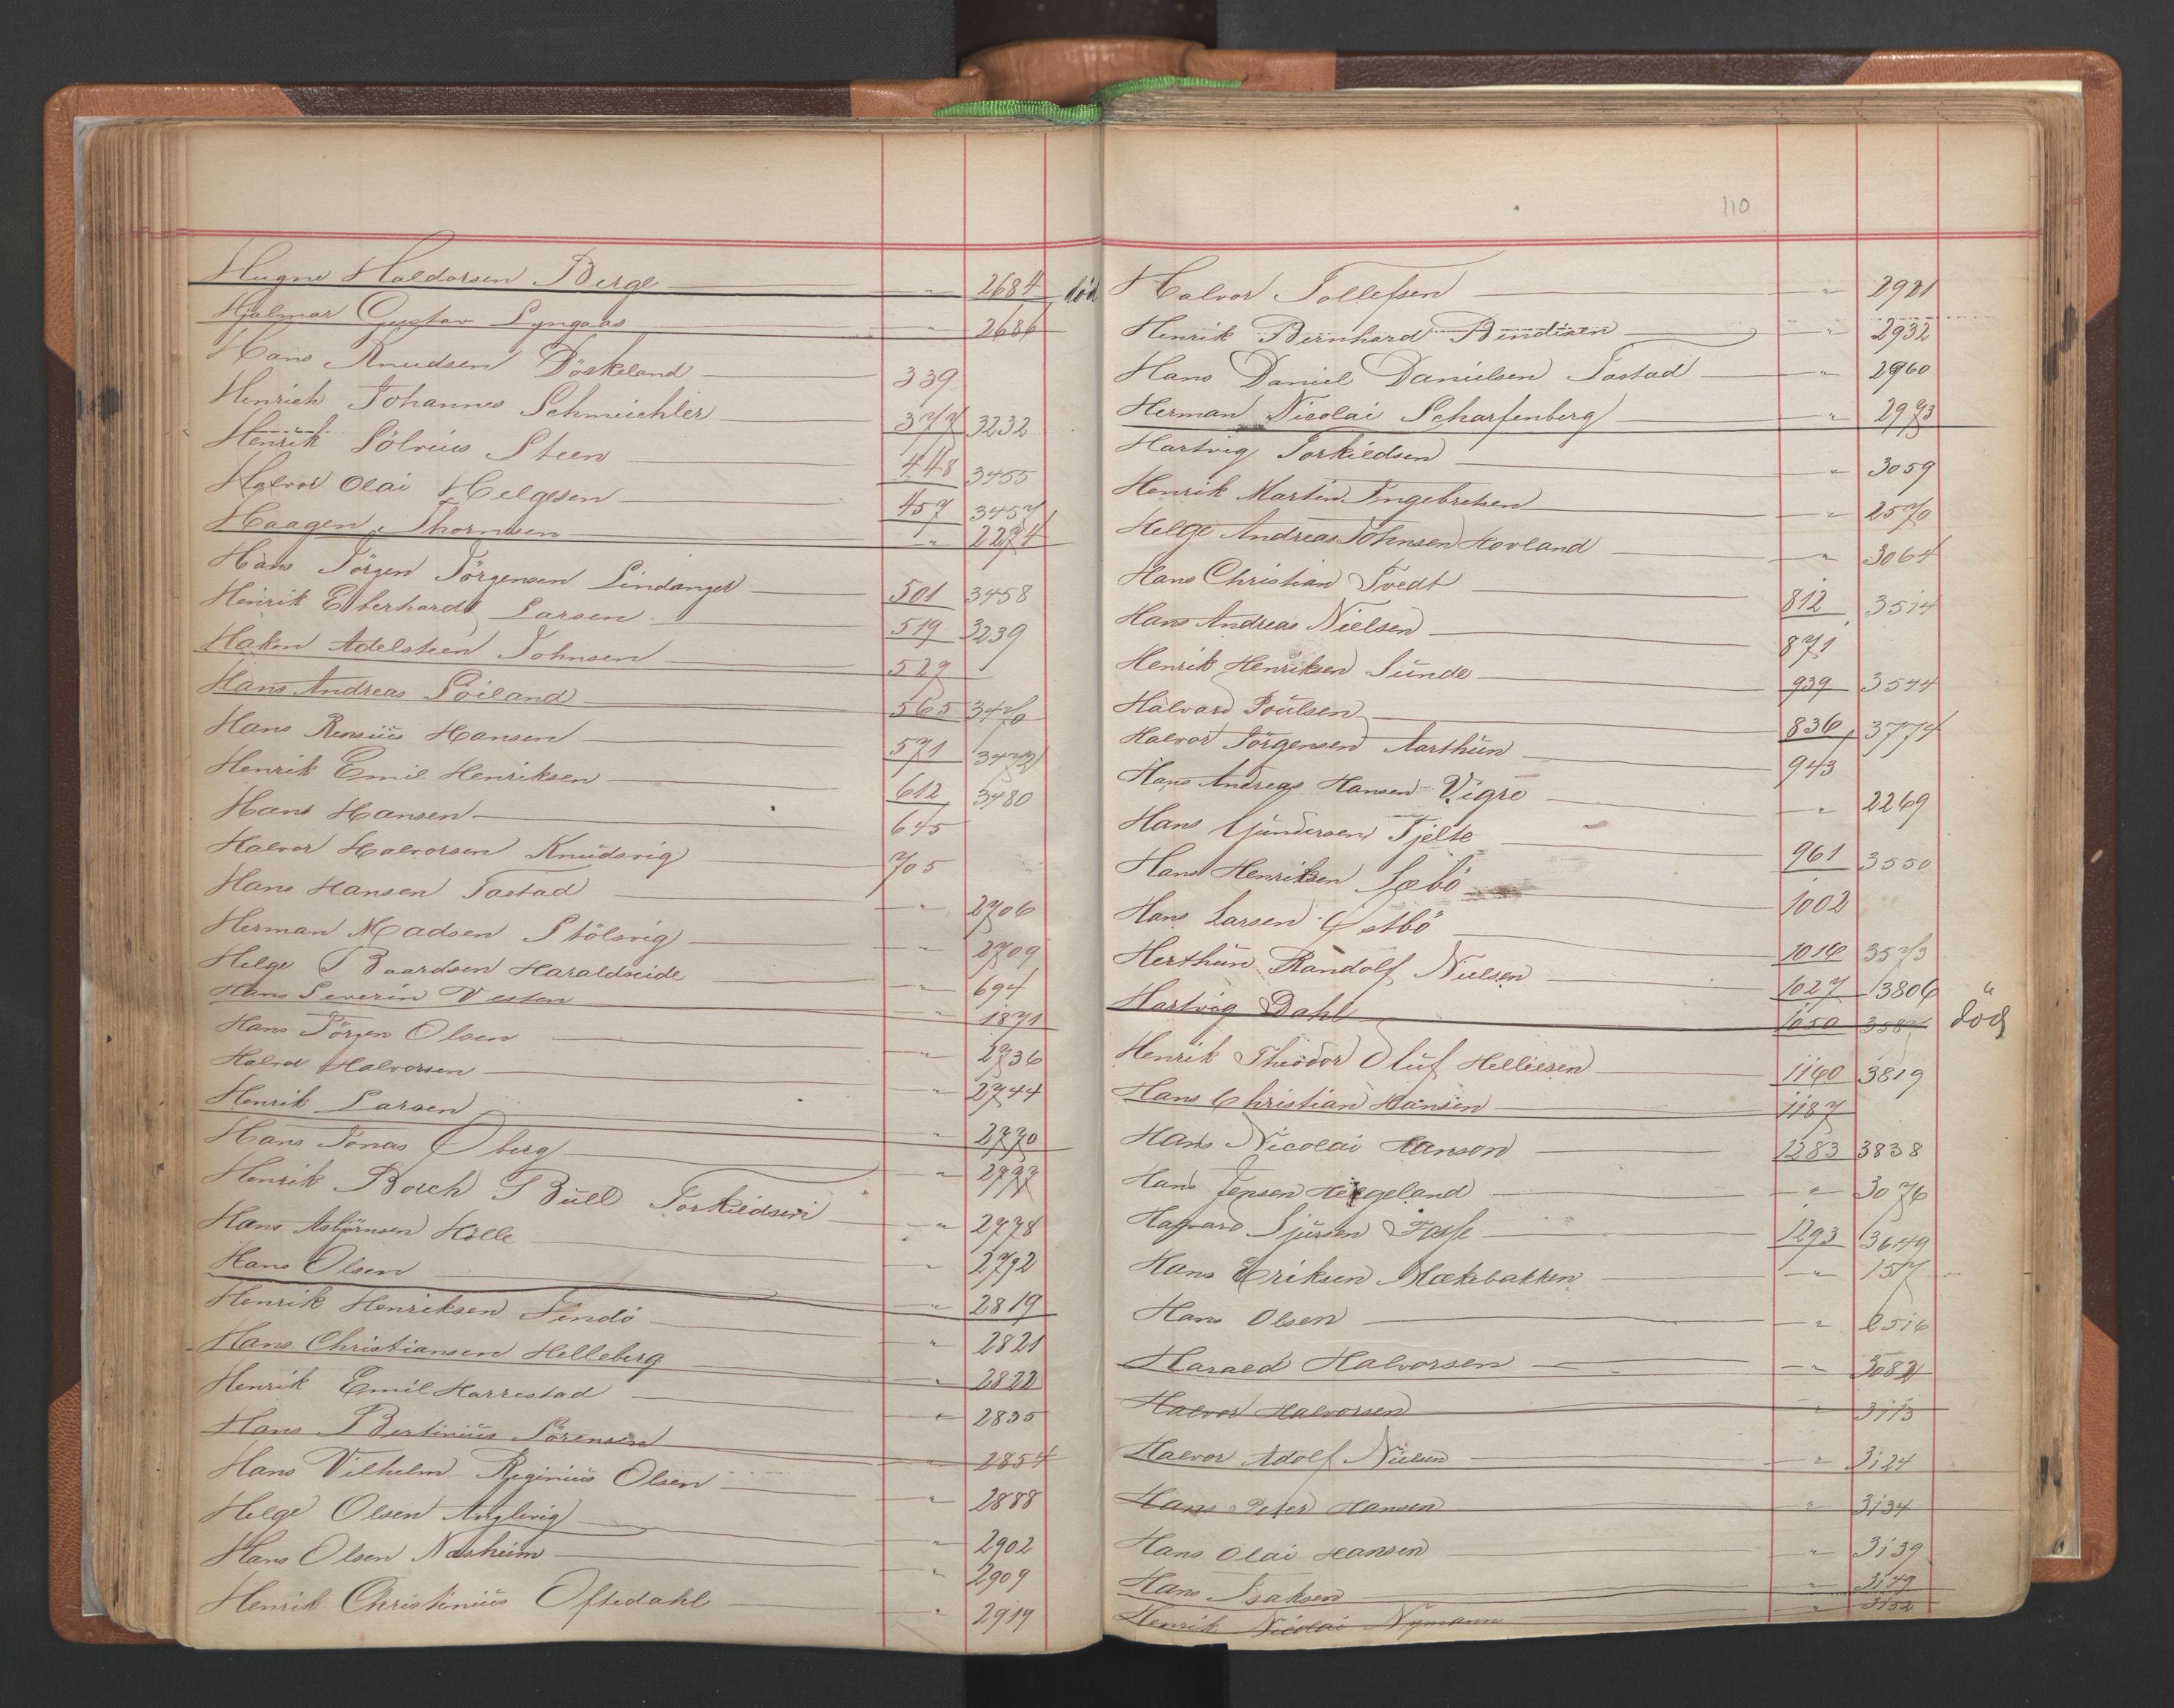 Hugne Haldorsen Berge " 2684 død
Hjalmar Gustav Lyngaas " 2686
Hans Knudsen Döskeland 339
Henrich Johannes Schmeichler 377 3232
Henrik Sölvius Steen 448 3455
Halvor Olai Helgesen 457 3457
Haagen Thornsen " 2274
Hans Jörgen Jörgensen Lindanger 501 3458
Henrik Eberhardt Larsen 519 3239
Haken Adelsteen Johnsen 527
Hans Andreas Soiland 565 3470
Hans Rensius Hansen 571 3472
Henrik Emil Henriksen 612 3480
Hans Hansen 645
Halvor Halvorsen Knudsvig 705
Hans Hansen Tastad " 2706
Herman Madsen Stölsvig " 2709
Helge Baardsen Haraldseide " 694
Hans Severin Vesten " 1871
Hans Jörgen Olsen " 2736
Halvor Halvorsen " 2744
Henrik Larsen " 2770
Hans Jonas Oberg " 2777
Henrik Borch Bull Torkildsen " 2778
Hans Asbjörnsen Hölle " 2792
Hans Olsen " 2819
Henrik Henriksen Tendö " 2821
Hans Christiansen Helleberg " 2822
Henrik Emil Harrestad " 2835
Hans Bertinius Sörensen " 2854
Hans Vilhelm Reginius Olsen " 2888
Helge Olsen " 2902
Hans Olsen Nasheim " 2909
Henrik Christinius Oftedahl " 2919
110
Halvor Tollefsen " 2921
Henrik Bernhard Bendixen " 2932
Hans Daniel Danielsen Tastad " 2960
Herman Nicolai Scharfenberg " 2973
Hartvig Torkildsen " 3059
Henrik Martin Ingebretsen " 2570
Helge Andreas Johnsen Hovland " 3064
Hans Christian Tvedt 812 3514
Hans Andreas Nielsen 871
Henrik Henriksen Sunde 939 3544
Halvard Poulsen 836 3774
Halvor Jörgensen Aarthun 943
Hans Andreas Hansen Vigre " 2269
Hans Gundersen Tjelte 961 3550
Hans Henriksen Sæbö 1002
Hans Larsen Östbö 1014 3573
Herthun Randolf Nielsen 1027 3806 "
Hartvig Dahl 1050 3587 død
Henrik Theodor Oluf Helliesen 1160 3819
Hans Christian Hansen 1187
Hans Nicolai Hanson 1283 3838
Hans Jensen Helgeland " 3076
Hagvard Sjursen Fosse 1293 3649
Hans Eriksen Mækebakken " 157
Hans Olsen " 2516
Harald Halvorsen " 3082
Halvor Halvorsen " 3113
Halvor Adolf Nielsen " 3124
Hans Peter Hansen " 3134
Hans Olai Hansen " 3139
Hans Isaksen " 3149
Henrik Nicolai Nymann " 3152